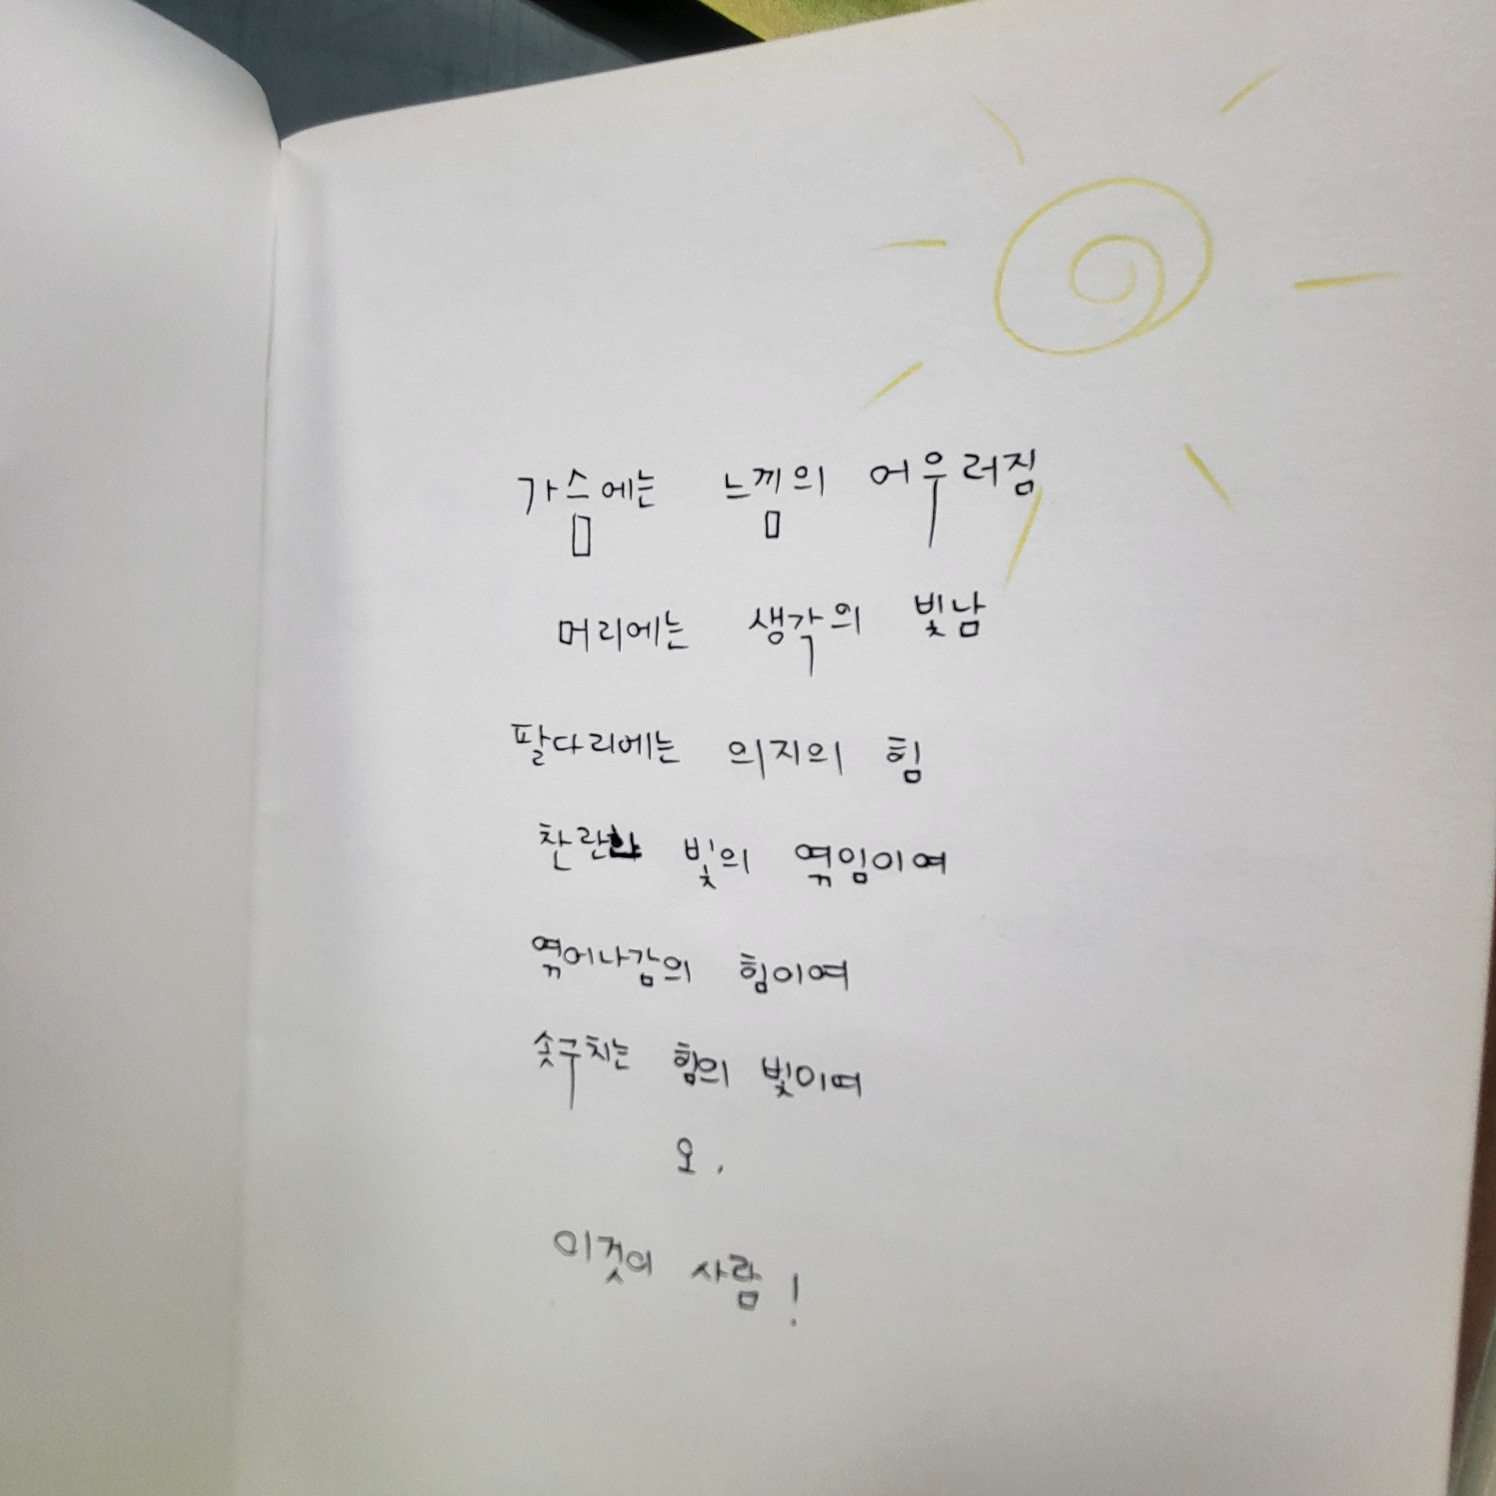 가슴에는 느낌의 어우러짐
머리에는 생각의 빛남
팔다리에는 의지의 힘
찬란한 빛의 엮임이여
엮어나감의 힘이여
솟구치는 힘의 빛이여
오,
이것이 사람!